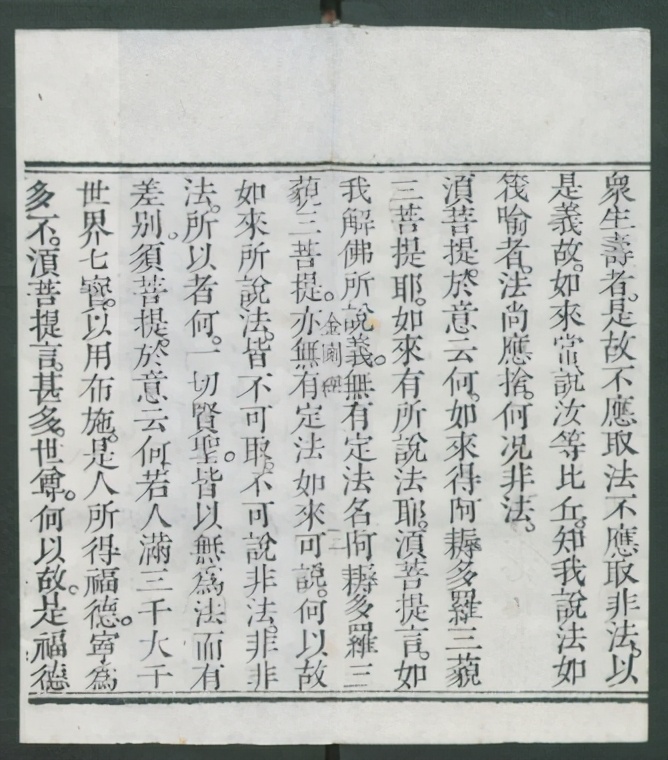 衆生壽者。是故不應取法不應取非法。以
是義故。如來常說汝等比丘。知我說法如
筏喻者。法尚應捨。何况非法。
湏菩提。於意云何。如來得阿耨多羅三藐
三菩提耶。如來有所說法耶。湏菩提言。如
我解佛所說義。無有定法名阿耨多羅三
藐三菩提。亦無有定法如來可說。何以故
如來所說法。皆不可取。不可說非法。非非
法。所以者何。一切賢聖。皆以無爲法而有
差別。須菩提。於意云何若人滿三千大千
世界七寶。以用布施。是人所得福德。寧爲
多不。湏菩提言。甚多。世尊。何以故。是福德